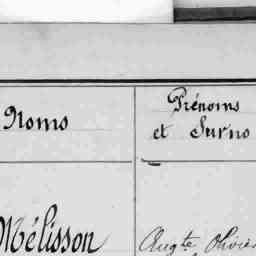 Noms
Prénoms
et Surno
Mélisson
Augte Olivier